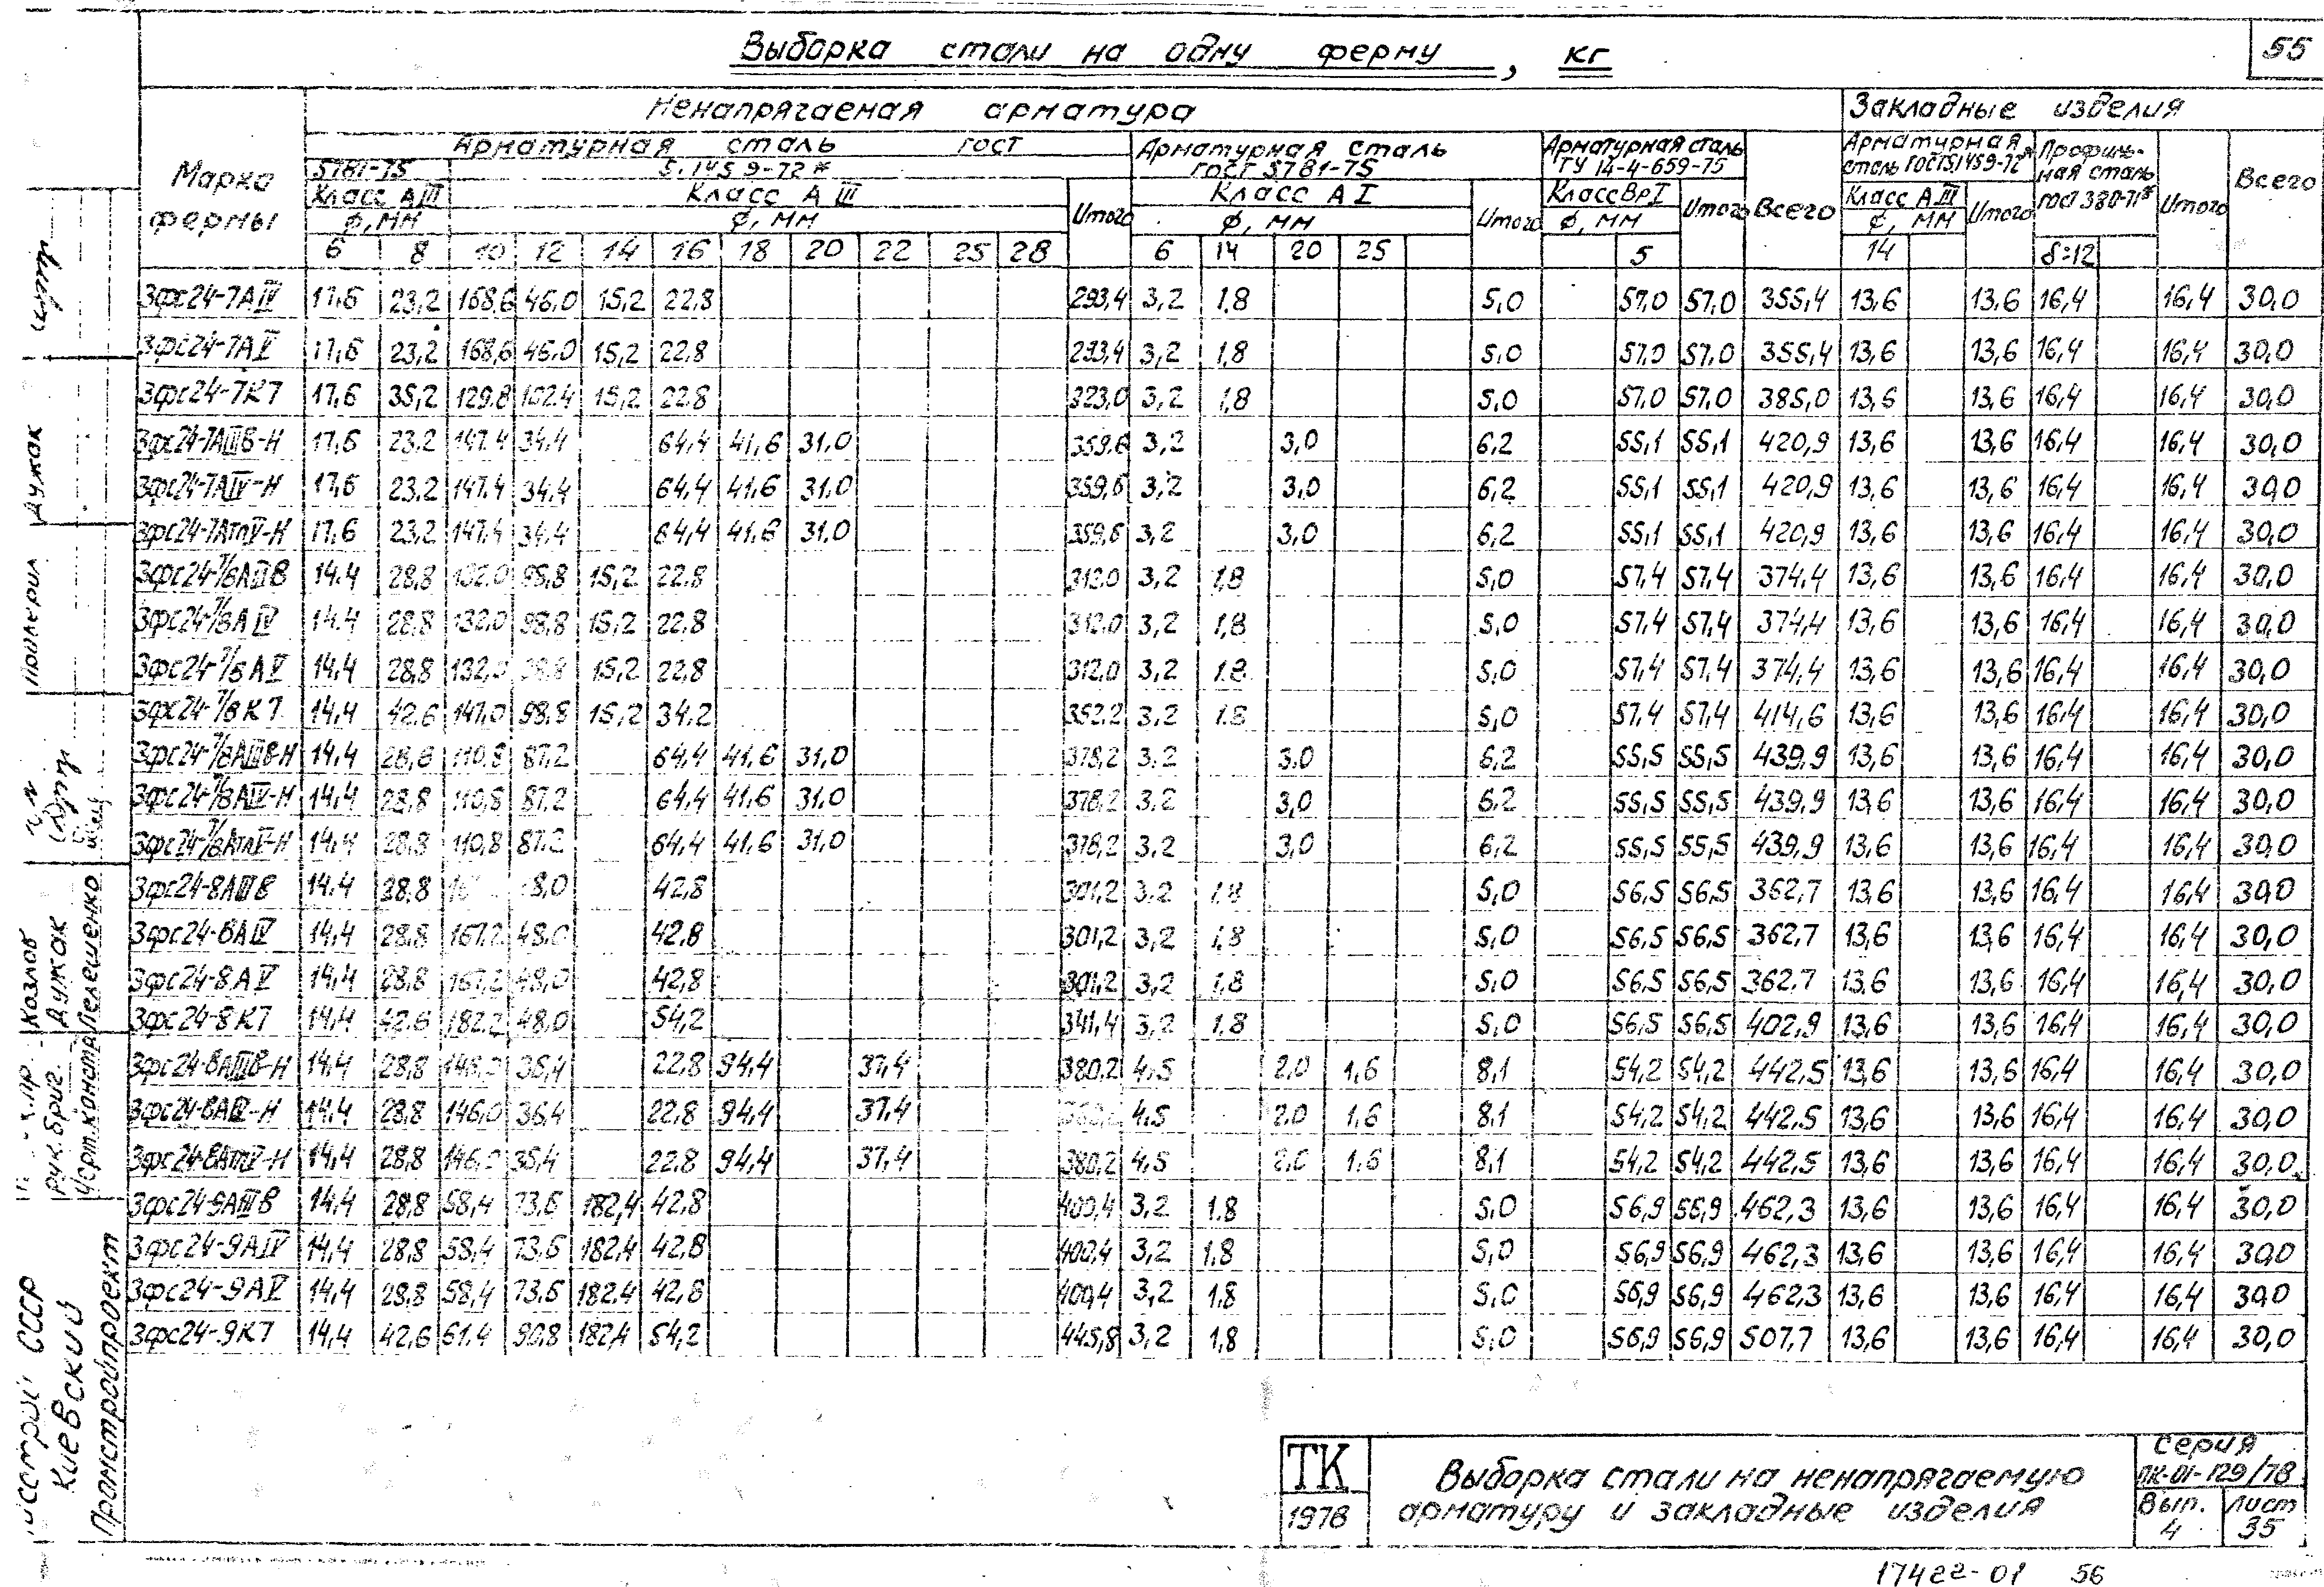 55
Выборка стали на одну ферму, кг
Марка фермы
Ненапрягаемая арматура
Закладные изделия
Арматурная сталь ГОСТ
Арматурная сталь ГОСТ 5781-75
Арматурная сталь ТУ 14-4-659-75
Всего
Арматурная сталь ГОСТ5.1459-72*
Профильная сталь ГОСТ 380-71*
Итого
Всего
5781-75
5.1459-72*
Класс АIII
Класс АIII
Итого
Класс АI
Итого
Класс ВрI
Итого
Класс АIII
Итого
ф, мм
ф, мм
ф, мм
ф, мм
ф, мм
6 8 10 12 14 16 18 20 22 25 28 6 14 20 25 5 14 δ=12
3фс24-7АIV 17,6 23,2 168,6 46,0 15,2 22,8 293,4 3,2 1,8 5,0 57,0 57,0 355,4 13,6 13,6 16,4 16,4 30,0
3фс24-7АV 17,6 23,2 168,6 46,0 15,2 22,8 293,4 3,2 1,8 5,0 57,0 57,0 355,4 13,6 13,6 16,4 16,4 30,0
3фс24-7К7 17,6 35,2 129,8 102,4 15,2 22,8 323,0 3,2 1,8 5,0 57,0 57,0 385,0 13,6 13,6 16,4 16,4 30,0
3фс24-7АIIIв-Н 17,6 23,2 147,4 34,4 64,4 41,6 31,0 359,6 3,2 3,0 6,2 55,1 55,1 420,9 13,6 13,6 16,4 16,4 30,0
3фс24-7АIV-Н 17,6 23,2 147,4 34,4 64,4 41,6 31,0 359,6 3,2 3,0 6,2 55,1 55,1 420,9 13,6 13,6 16,4 16,4 30,0
3фс24-7АтV-Н 17,6 23,2 147,4 34,4 64,4 41,6 31,0 359,6 3,2 3,0 6,2 55,1 55,1 420,9 13,6 13,6 16,4 16,4 30,0
3фс24-7/8АIIIв 14,4 28,8 132,0 98,8 15,2 22,8 312,0 3,2 1,8 5,0 57,4 57,4 374,4 13,6 13,6 16,4 16,4 30,0
3фс24-7/8АIV 14,4 28,8 132,0 98,8 15,2 22,8 312,0 3,2 1,8 5,0 57,4 57,4 374,4 13,6 13,6 16,4 16,4 30,0
3фс24-7/8АV 14,4 28,8 132,0 98,8 15,2 22,8 312,0 3,2 1,8 5,0 57,4 57,4 374,4 13,6 13,6 16,4 16,4 30,0
3фс24-7/8К7 14,4 42,6 147,0 98,8 15,2 34,2 352,2 3,2 1,8 5,0 57,4 57,4 414,6 13,6 13,6 16,4 16,4 30,0
3фс24-7/8АIIIв-Н 14,4 28,8 110,8 87,2 64,4 41,6 31,0 378,2 3,2 3,0 6,2 55,5 55,5 439,9 13,6 13,6 16,4 16,4 30,0
3фс24-7/8АIV-Н 14,4 28,8 110,8 87,2 64,4 41,6 31,0 378,2 3,2 3,0 6,2 55,5 55,5 439,9 13,6 13,6 16,4 16,4 30,0
3фс24-7/8АтV-Н 14,4 28,8 110,8 87,2 64,4 41,6 31,0 378,2 3,2 3,0 6,2 55,5 55,5 439,9 13,6 13,6 16,4 16,4 30,0
3фс24-8АIIIв 14,4 28,8 42,8 301,2 3,2 1,8 5,0 56,5 56,5 362,7 13,6 13,6 16,4 16,4 30,0
3фс24-8АIV 14,4 28,8 167,2 48,0 42,8 301,2 3,2 1,8 5,0 56,5 56,5 362,7 13,6 13,6 16,4 16,4 30,0
3фс24-8АV 14,4 28,8 167,2 48,0 42,8 301,2 3,2 1,8 5,0 56,5 56,5 362,7 13,6 13,6 16,4 16,4 30,0
3фс24-8К7 14,4 42,6 182,2 48,0 54,2 341,4 3,2 1,8 5,0 56,5 56,5 402,9 13,6 13,6 16,4 16,4 30,0
3фс24-8АIIIв-Н 14,4 28,8 146,0 36,4 22,8 94,4 37,4 380,2 4,5 2,0 1,6 8,1 54,2 54,2 442,5 13,6 13,6 16,4 16,4 30,0
3фс24-8АIV-Н 14,4 28,8 146,0 36,4 22,8 94,4 37,4 380,2 4,5 2,0 1,6 8,1 54,2 54,2 442,5 13,6 13,6 16,4 16,4 30,0
3фс24-8АтV-Н 14,4 28,8 146,0 36,4 22,8 94,4 37,4 380,2 4,5 2,0 1,6 8,1 54,2 54,2 442,5 13,6 13,6 16,4 16,4 30,0
3фс24-9АIIIв 14,4 28,8 58,4 73,6 182,4 42,8 400,4 3,2 1,8 5,0 56,9 56,9 462,3 13,6 13,6 16,4 16,4 30,0
3фс24-9АIV 14,4 28,8 58,4 73,6 182,4 42,8 400,4 3,2 1,8 5,0 56,9 56,9 462,3 13,6 13,6 16,4 16,4 30,0
3фс24-9АV 14,4 28,8 58,4 73,6 182,4 42,8 400,4 3,2 1,8 5,0 56,9 56,9 462,3 13,6 13,6 16,4 16,4 30,0
3фс24-9К7 14,4 42,6 61,4 90,8 182,4 54,2 445,8 3,2 1,8 5,0 56,9 56,9 507,7 13,6 13,6 16,4 16,4 30,0
Дужак
Козлов
Рук. бриг. Дужак
Ст. констр. Пелешенко
СССР
Киевский
Промстройпроект
ТК
1978
Выборка стали на ненапрягаемую
арматуру и закладные изделия
Серия
ПК-01-129/78
Вып. 4
Лист 35
17422-01 56